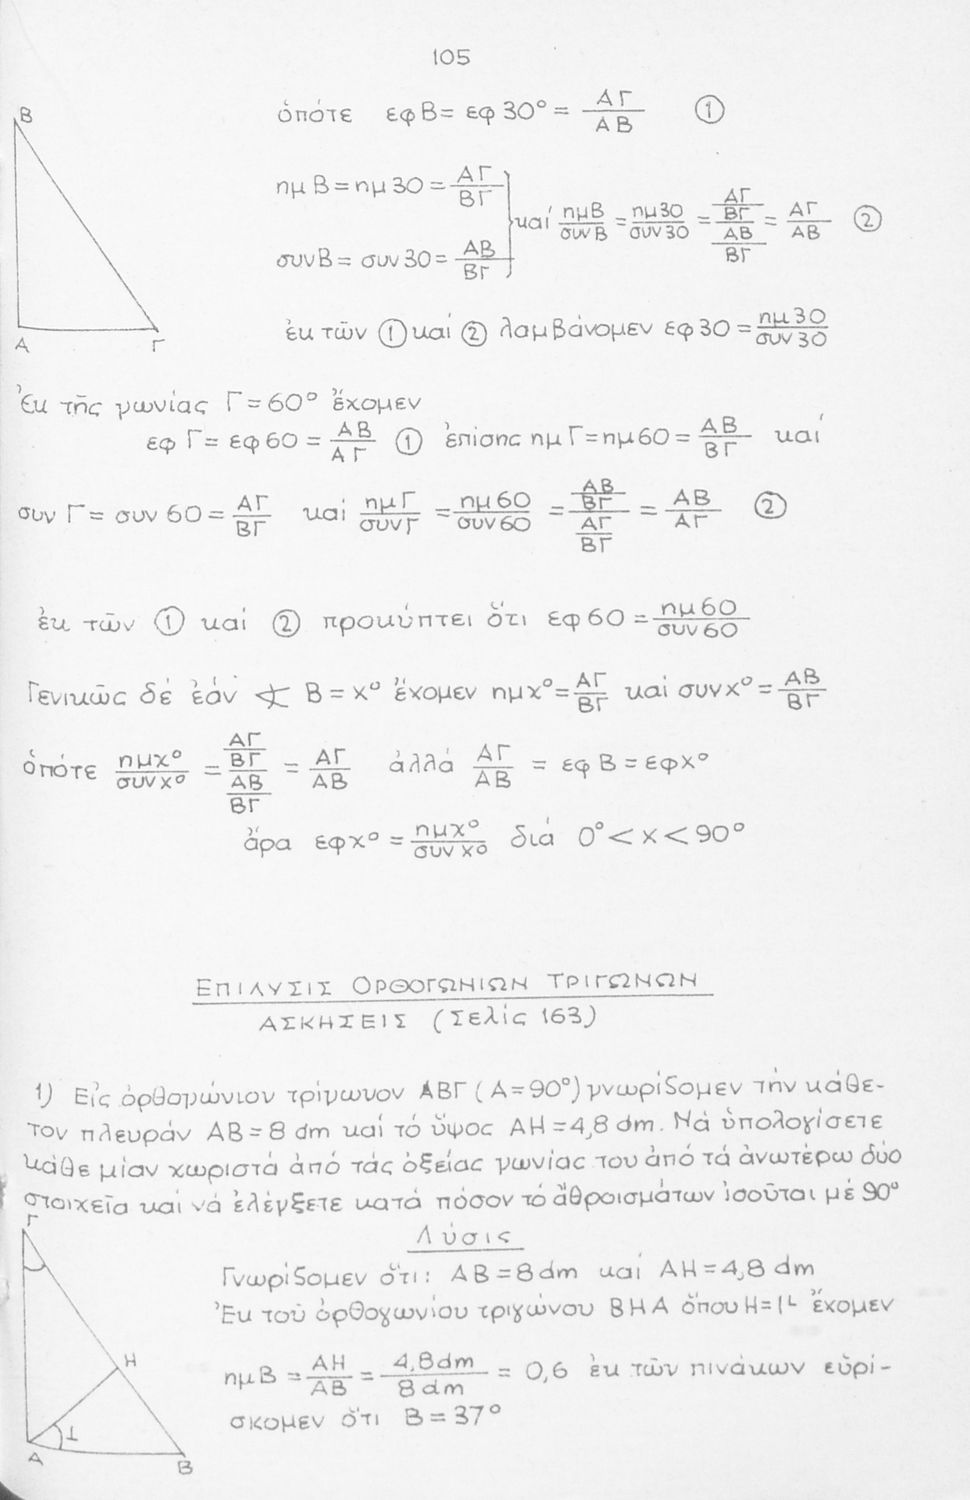 105
Β
ὁπότε εφΒ = εφ30° = ΑΓ/ΑΒ ①
ημΒ = ημ30 = ΑΓ/ΒΓ
συνΒ = συν30 = ΑΒ/ΒΓ
καί ημΒ/συνΒ = ημ30/συν30 = (ΑΓ/ΒΓ)/(ΑΒ/ΒΓ) = ΑΓ/ΑΒ ②
Α Γ
ἐκ τῶν ① καί ② λαμβάνομεν εφ30 = ημ30/συν30
Ἐκ τῆς γωνίας Γ = 60° ἔχομεν
εφΓ = εφ60 = ΑΒ/ΑΓ ① ἐπίσης ημΓ = ημ60 = ΑΒ/ΒΓ καί
συνΓ = συν60 = ΑΓ/ΒΓ καί ημΓ/συνΓ = ημ60/συν60 = (ΑΒ/ΒΓ)/(ΑΓ/ΒΓ) = ΑΒ/ΑΓ ②
ἐκ τῶν ① καί ② προκύπτει ὅτι εφ60 = ημ60/συν60
Γενικῶς δέ ἐάν ∢ Β = χ° ἔχομεν ημχ° = ΑΓ/ΒΓ καί συνχ° = ΑΒ/ΒΓ
ὁπότε ημχ°/συνχ° = (ΑΓ/ΒΓ)/(ΑΒ/ΒΓ) = ΑΓ/ΑΒ ἀλλά ΑΓ/ΑΒ = εφΒ = εφχ°
ἄρα εφχ° = ημχ°/συνχ° διά 0° < χ < 90°
ΕΠΙΛΥΣΙΣ ΟΡΘΟΓΩΝΙΩΝ ΤΡΙΓΩΝΩΝ
ΑΣΚΗΣΕΙΣ (Σελίς 163)
1) Εἰς ὀρθογώνιον τρίγωνον ΑΒΓ (Α = 90°) γνωρίζομεν τήν κάθε-
τον πλευράν ΑΒ = 8 dm καί τό ὕψος ΑΗ = 4,8 dm. Νά ὑπολογίσετε
κάθε μίαν χωριστά ἀπό τάς ὀξείας γωνίας του ἀπό τά ἀνωτέρω δύο
στοιχεῖα καί νά ἐλέγξετε κατά πόσον τό ἄθροισμάτων ἰσοῦται μέ 90°
Λύσις
Γ
Γνωρίζομεν ὅτι: ΑΒ = 8 dm καί ΑΗ = 4,8 dm
Ἐκ τοῦ ὀρθογωνίου τριγώνου ΒΗΑ ὅπου Η = 1∟ ἔχομεν
Η
ημΒ = ΑΗ/ΑΒ = 4,8dm/8dm = 0,6 ἐκ τῶν πινάκων εὑρί-
σκομεν ὅτι Β = 37°
1
Α Β